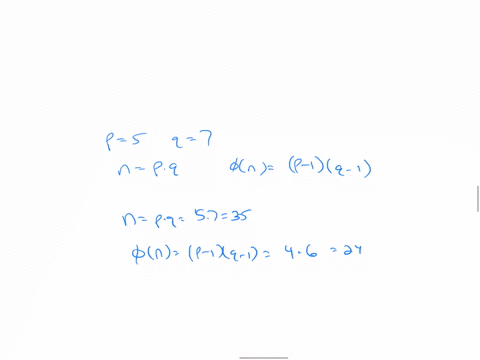 p=5 q=7
n=p.q ϕ(n)= (p-1)(q-1)
n=p.q= 5.7=35
ϕ(n)=(p-1)(q-1)= 4.6 =24